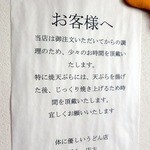 お客様へ
当店は御注文いただいてからの調
理のため、少々のお時間を頂戴い
たします。
特に焼天ぷらには、天ぷらを揚げ
た後、じっくり焼き上げるため時
間を頂戴いたします。
宜しくお願いいたします
体に優しいうどん店
店主